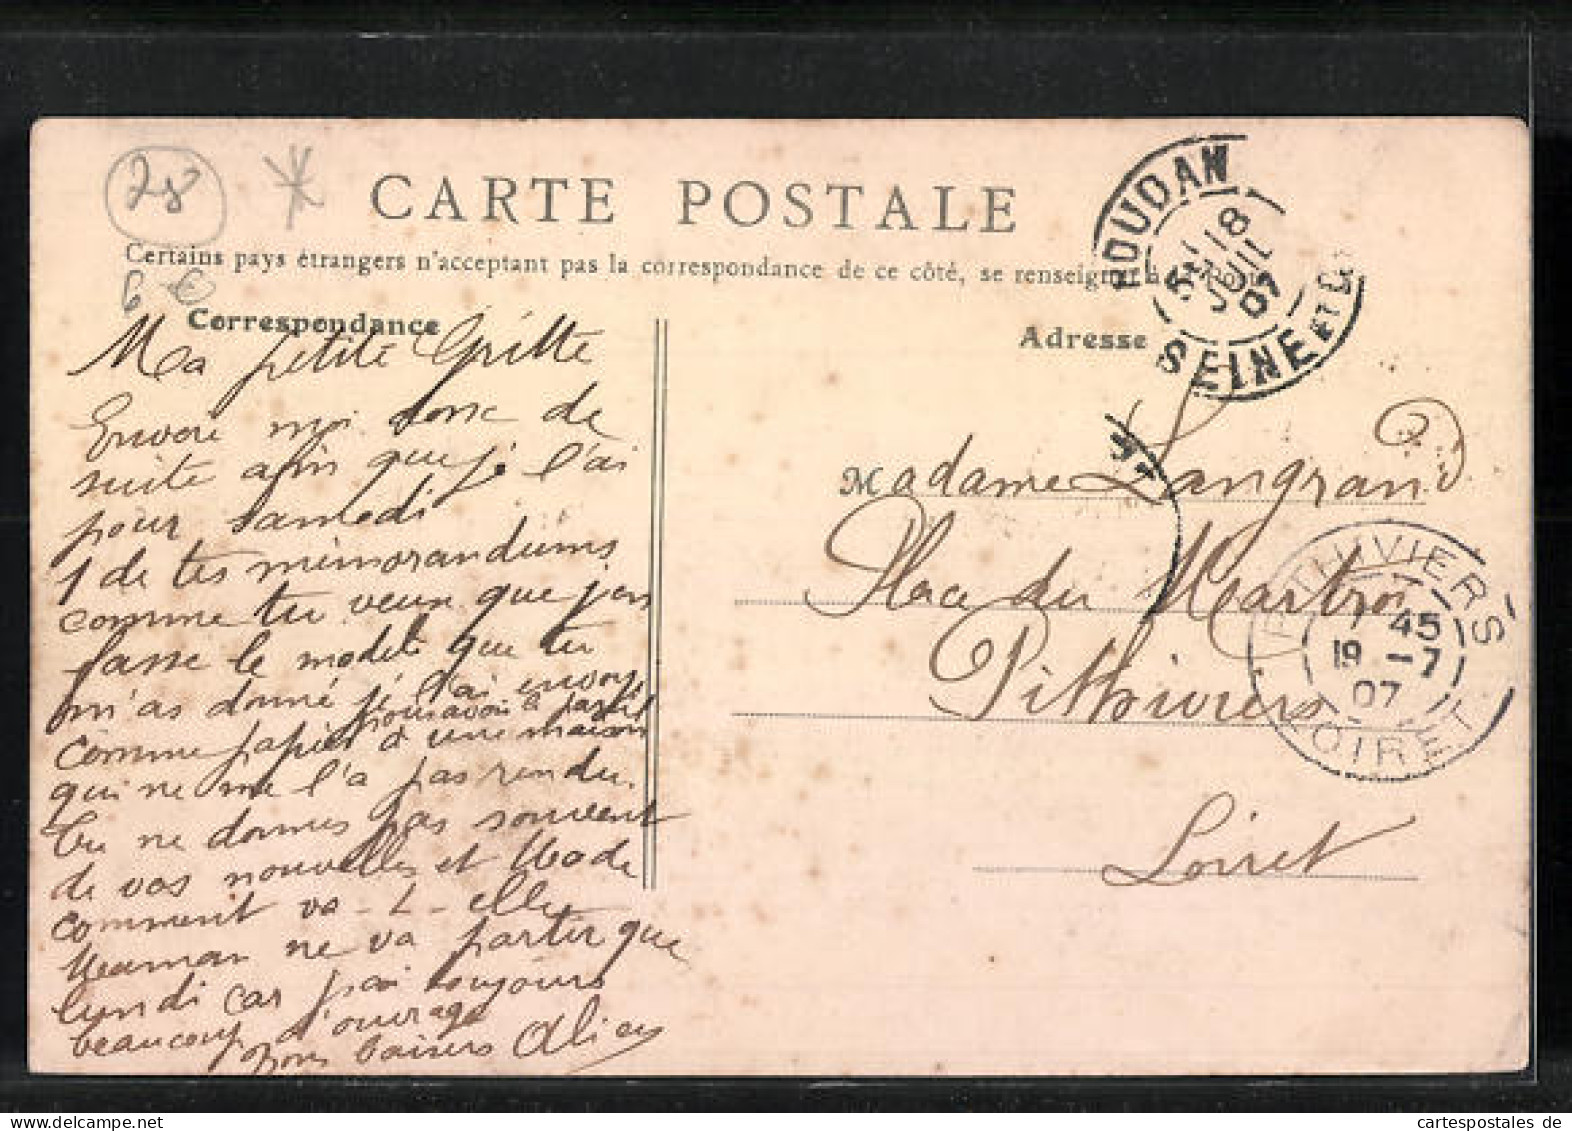 28
CARTE POSTALE
Certains pays étrangers n'acceptant pas la correspondance de ce côté, se renseigner à la Poste
6 €
Correspondance
Ma petite Gritte
Envoie moi donc de
suite afin que je l'ai
pour samedi
1 de tes mémorandums
comme tu veux que je
fasse le modèle que tu
m'as donné je l'ai envoyé
comme papier à une maison
qui ne me l'a pas rendu.
Tu ne donnes pas souvent
de vos nouvelles et
comment va-t-elle
Maman ne va partir que
lundi car j'ai toujours
beaucoup d'ouvrage
bons baisers
Adresse
Madame Langrand
Place du Martroi
Pithiviers
Loiret
HOUDAN
18
JUIL
07
SEINE ET O
PITHIVIERS
7 45
19 -7
07
LOIRET
cartespostales de